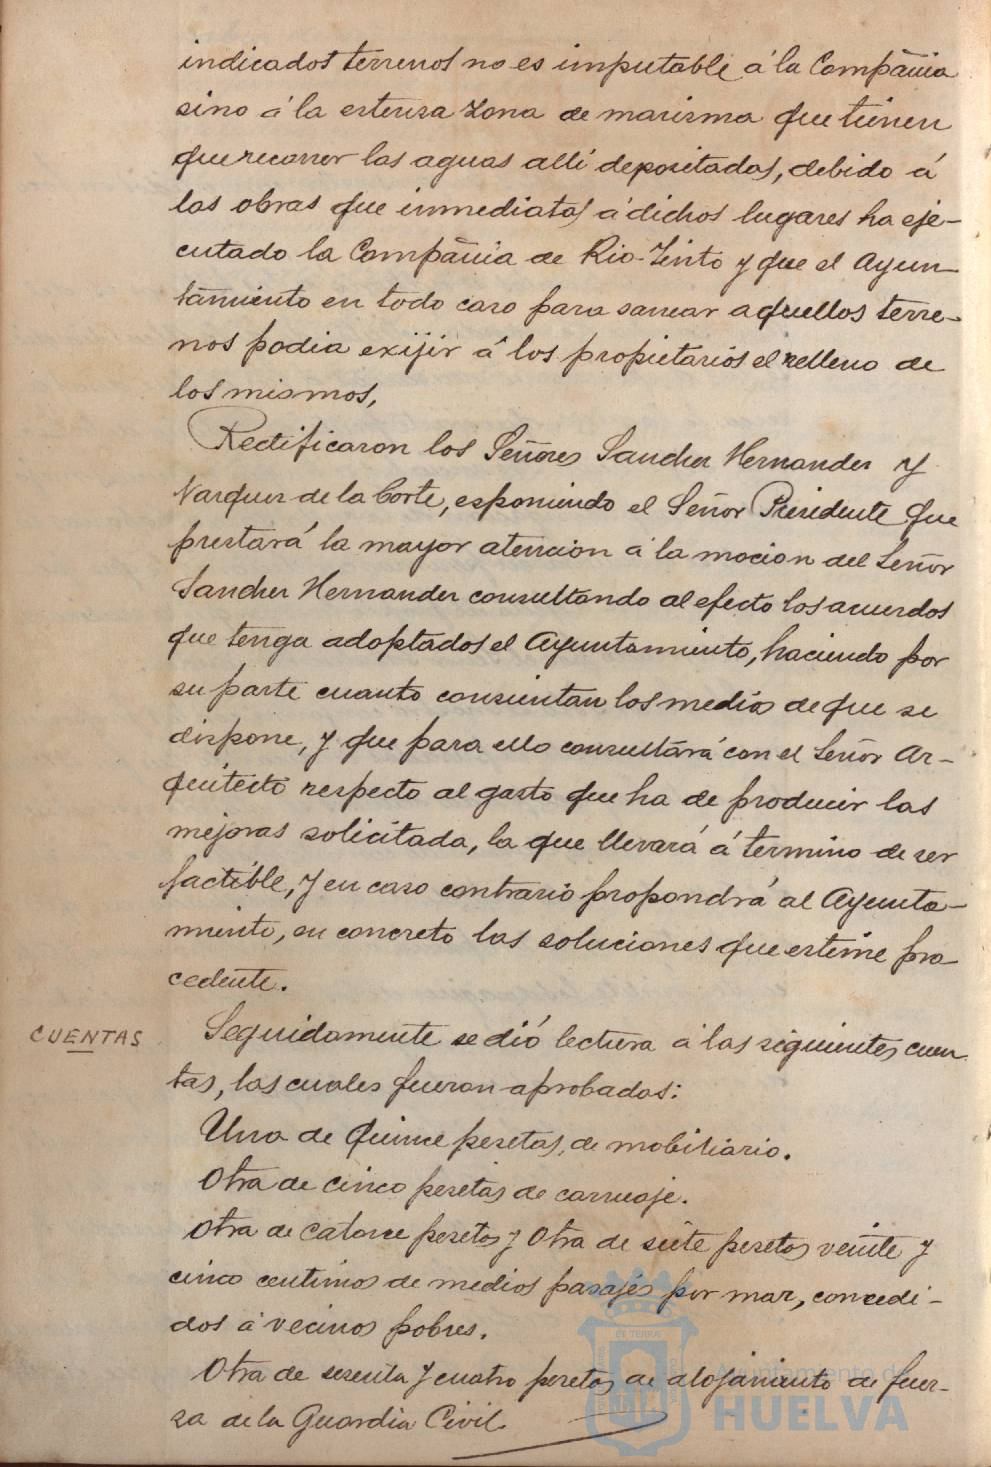 indicados terrenos no es imputable á la Compañia
sino á la estensa zona de marisma que tienen
que recorrer las aguas allí depositadas, debido á
las obras que inmediatas á dichos lugares ha eje-
cutado la Compañia de Rio-Tinto y que el Ayun-
tamiento en todo caso para sanear aquellos terre-
nos podia exijir á los propietarios el relleno de
los mismos,
Rectificaron los Señores Sanchez Hernandez y
Vazquez de la Corte, esponiendo el Señor Presidente que
prestará la mayor atencion á la mocion del Señor
Sanchez Hernandez consultando al efecto los acuerdos
que tenga adoptados el Ayuntamiento, haciendo por
su parte cuanto consientan los medios de que se
dispone, y que para ello consultará con el Señor Ar-
quitecto respecto al gasto que ha de producir las
mejoras solicitada, la que llevará á termino de ser
factible, y en caso contrario propondrá al Ayunta-
miento, en concreto las soluciones que estime pro-
cedente.
CUENTAS
Seguidamente se dió lectura á las siguientes cuen
tas, las cuales fueron aprobadas:
Una de quince pesetas, de mobiliario.
Otra de cinco pesetas de carruaje.
Otra de catorce pesetas y otra de siete pesetas veinte y
cinco centimos de medios pasajes por mar, concedi-
dos á vecinos pobres.
Otra de sesenta y cuatro pesetas de alojamiento de fuer-
za de la Guardia Civil.
Ayuntamiento de
HUELVA